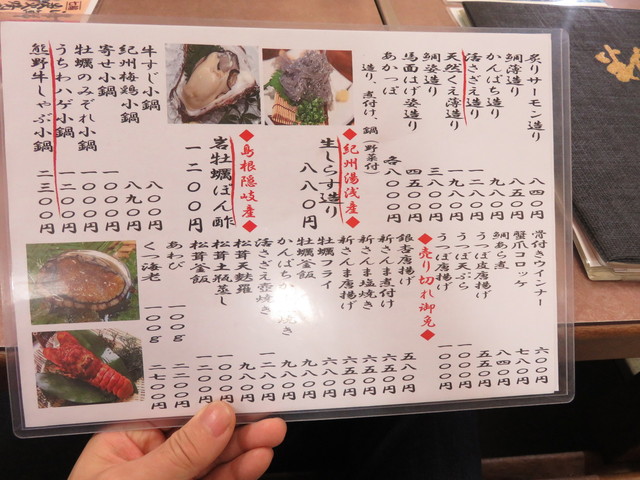 炙りサーモン造り 八四〇円
鯛薄造り 八五〇円
かんぱち造り 九八〇円
活さざえ造り
天然くえ薄造り 一九八〇円
鯛姿造り 三八〇〇円
馬面はげ姿造り 四五〇〇円
あかっぽ 各八〇〇〇円
造り、煮付け、鍋(野菜付)
◆紀州湯浅産◆
生しらす造り 八八〇円
◆島根隠岐産◆
岩牡蠣ぽん酢 一二〇〇円
牛すじ小鍋 八〇〇円
紀州梅鶏小鍋 八九〇円
寄せ小鍋 一〇〇〇円
牡蠣のみぞれ小鍋 一〇〇〇円
うちわハゲ小鍋 一二〇〇円
熊野牛しゃぶ小鍋 二三〇〇円
骨付きウインナー 六〇〇円
蟹爪コロッケ 七八〇円
鯛あら煮 八四〇円
うつぼ皮唐揚げ 五五〇円
うつぼ天ぷら 一〇〇〇円
うつぼ唐揚げ 一〇〇〇円
◆売り切れ御免◆
銀杏唐揚げ 五八〇円
新さんま煮付け 六五〇円
新さんま塩焼き 六五〇円
新さんま唐揚げ 六五〇円
牡蠣フライ 九八〇円
牡蠣釜飯 九八〇円
かんぱちか 焼き 九八〇円
活さざえ壺焼き 一二八〇円
松茸天麩羅 九八〇円
松茸土瓶蒸し 一〇〇〇円
松茸釜飯 一二〇〇円
あわび 一〇〇g 二二〇〇円
くつ海老 一〇〇g 二七〇〇円